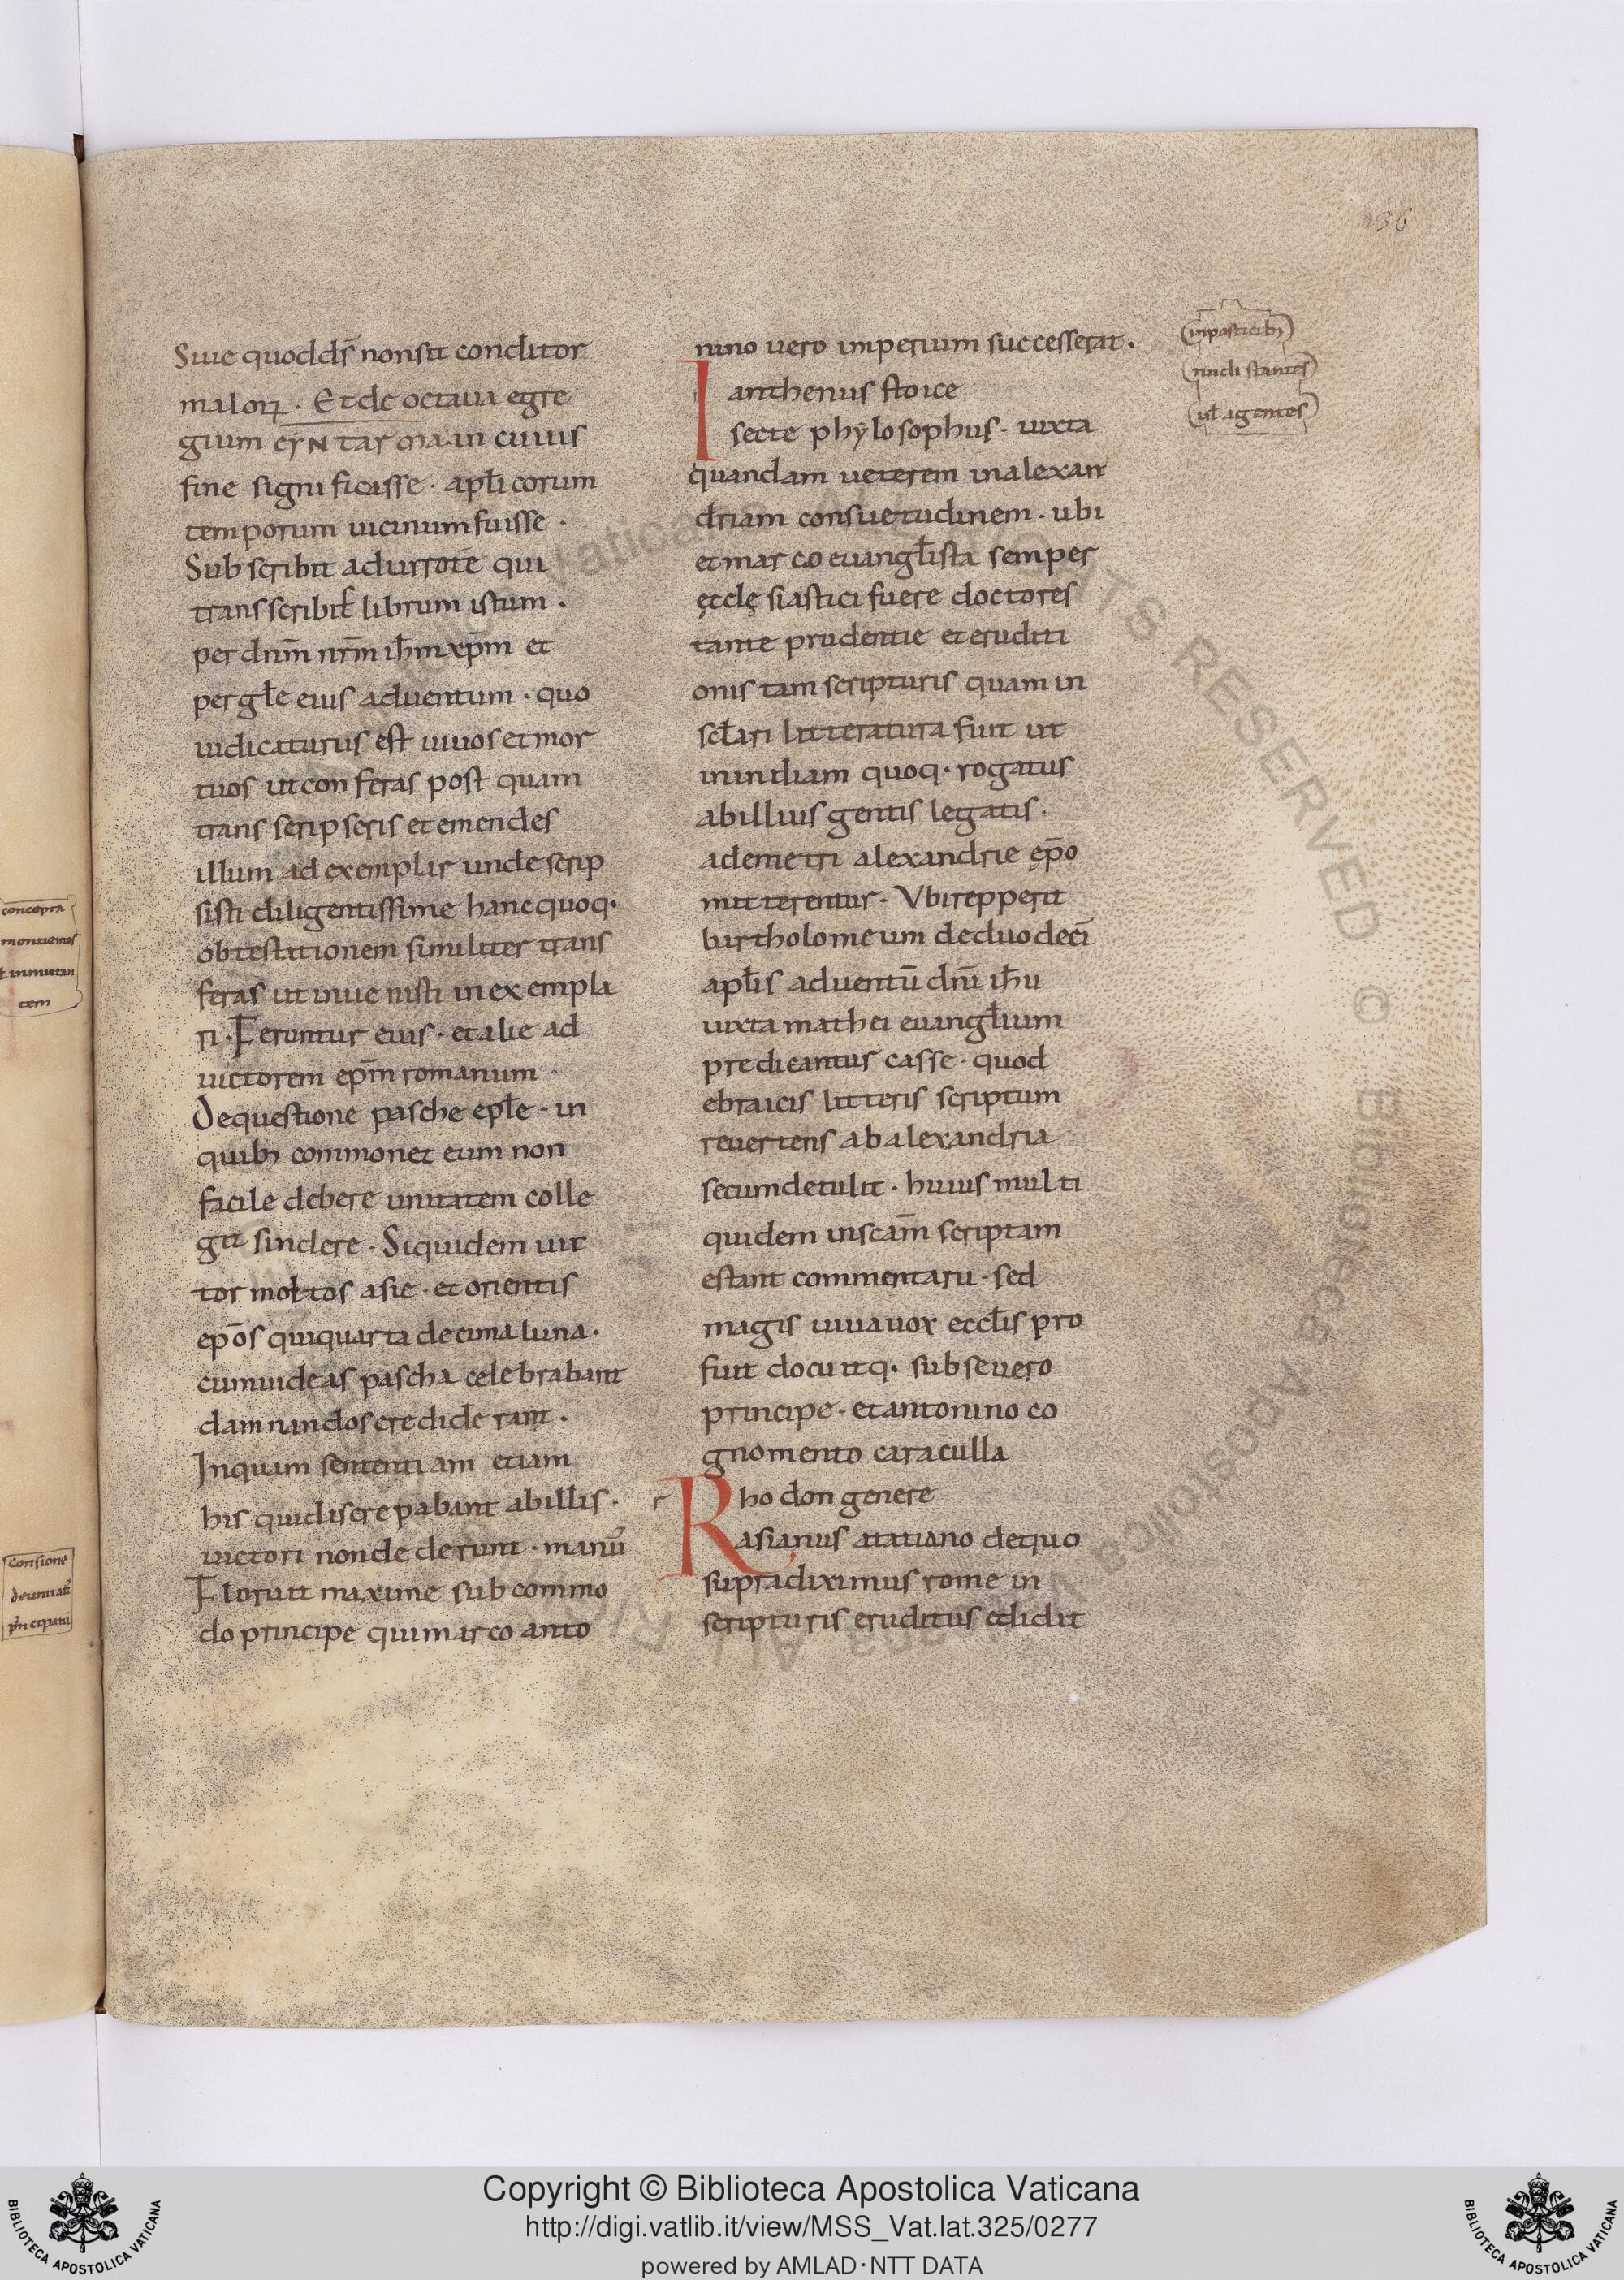 136
Siue quod ds̄ non sit conditor
malorꝝ. Et de octaua egre
gium cyntagma. in cuius
fine significasse. apl̄icorum
temporum uicinum fuisse.
Subscribit adurrotē qui
transscribit̄ librum istum.
per dnm̄ nrm̄ ih̄m xp̄m et
per gl̄e eius aduentum. quo
iudicaturus est uiuos et mor
tuos ut conferas post quam
transscripseris et emendes
illum ad exemplar unde scrip
sisti diligentissime hanc quoq.
obtestationem similiter trans
feras ut inuenisti in exempla
ri. Feruntur eius. et alie ad
uictorem ep̄m romanum
De questione pasche epl̄e. in
quibꝫ commonet eum non
facile debere unitatem colle
gii sindere. Siquidem uic
tor moltos asie. et orientis
ep̄os qui quarta decima luna.
cum iudeas pascha celebrabant
damnandos crediderant.
In quam sententiam etiam
his qui discrepabant ab illis.
uictori non dederunt. manū
Floruit maxime sub commo
do principe qui marco anto
nino uero imperium successerat.
Ianthenus stoice
secte phylosophus. iuxta
quandam ueterem in alexan
driam consuetudinem. ubi
et marco euangl̄ista semper
ęcclęsiastici fuere doctores
tante prudentie et eruditi
onis tam scripturis quam in
scl̄ari litteratura fuit ut
in indiam quoq. rogatus
ab illius gentis legatis.
a demetri alexandrie ęp̄o
mitterentur. Vbi repperit
bartholomeum de duodecī
apl̄is aduentū dnī ih̄u
iuxta mathei euangl̄ium
predicantus casse. quod
ebraicis litteris scriptum
reuertens ab alexandria
secum detulit. huius multi
quidem in scam̄ scriptam
estant commentarii. sed
magis uiua uox eccl̄is pro
fuit docuitq. sub seuero
principe. et antonino co
gnomento caraculla
r Rhodon genere
asianus a tatiano de quo
supra diximus rome in
scripturis eruditus edidit
inposticibꝫ
nudi stantes
ul̄ agentes
concepta
mentientes
inmutan
tem
consione
de unitatū
Copyright © Biblioteca Apostolica Vaticana
http://digi.vatlib.it/view/MSS_Vat.lat.325/0277
powered by AMLAD·NTT DATA
BIBLIOTECA APOSTOLICA VATICANA
BIBLIOTECA APOSTOLICA VATICANA